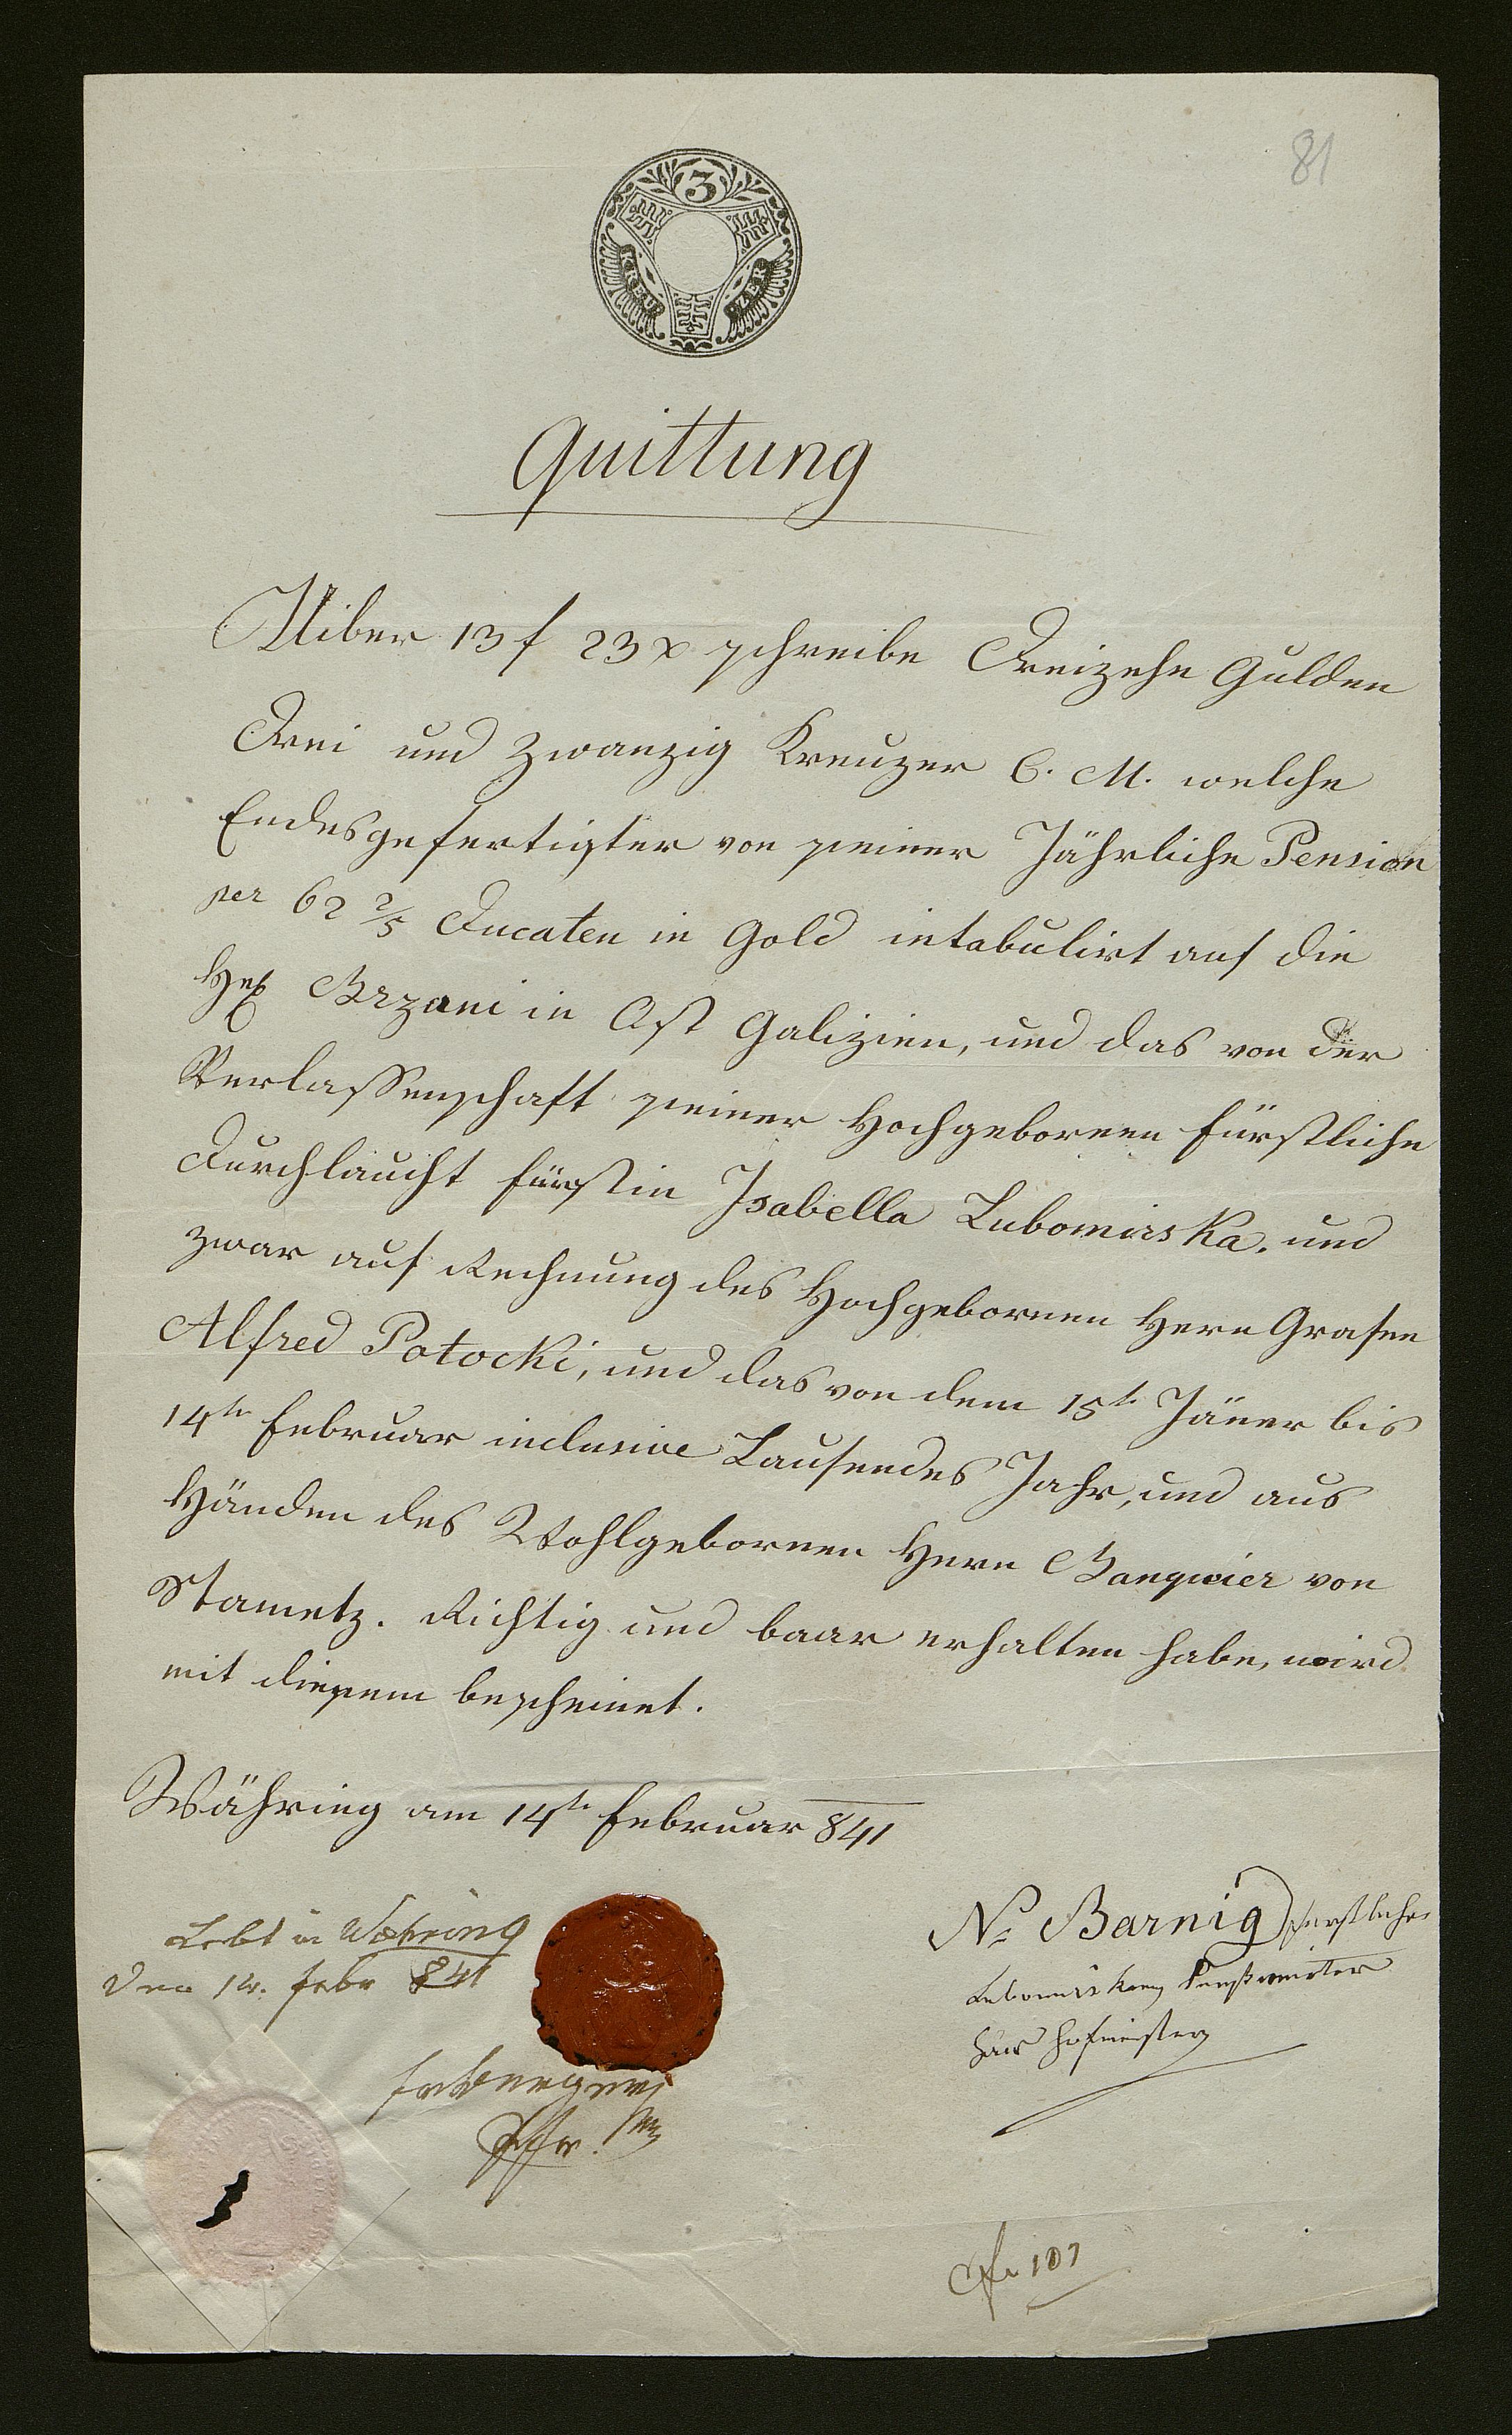 81
3
KREU ZER
Quittung
Uiber 13 f 23 x schreibe Dreizehn Gulden
Drei und Zwanzig Kreuzer C. M. welche
Endesgefertigter von seiner Jährliche Pension
per 62 2/5 Ducaten in Gold intabulirt auf die
Brzani in Ost Galizien, und das von der
Verlassenschaft seiner Hochgebornen Fürstliche
Durchlaucht Fürstin Isabella Lubomirska. und
zwar auf Rechnung des Hochgebornen Hern Grafen
Alfred Potocki, und das von dem 15t Jäner bis
14tn Februar inclusive Laufendes Jahr, und aus
Händen des Wohlgebornen Hern Banquier von
Stametz. Richtig und baar erhalten habe, wird
mit diesem bescheinet.
Währing am 14tn Februar 841
N: Barnig fürstlicher
Haus Hofmeister
Lebt in Wahring
den 14. Febr 841
Pfr.
107